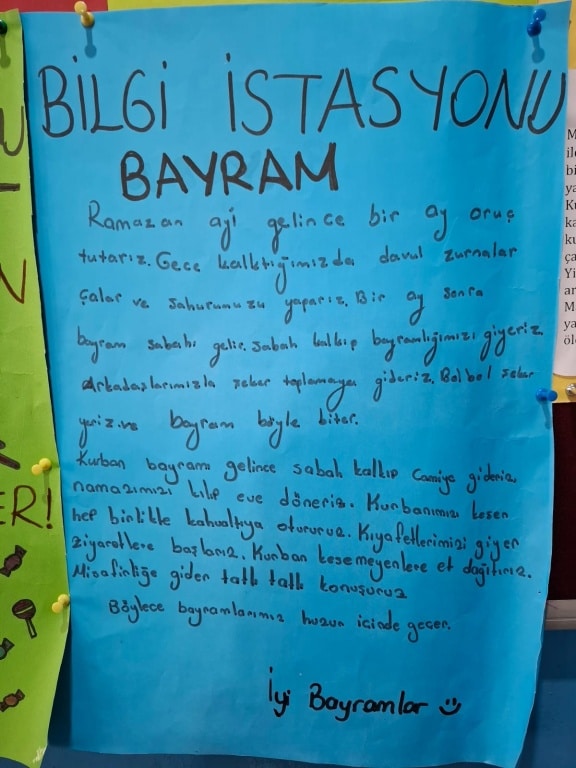 BİLGİ İSTASYONU
BAYRAM
Ramazan ayı gelince bir ay oruç
tutarız. Gece kalktığımızda davul zurnalar
çalar ve sahurumuzu yaparız. Bir ay sonra
bayram sabahı gelir. Sabah kalkıp bayramlığımızı giyeriz.
Arkadaşlarımızla şeker toplamaya gideriz. Bol bol şeker
yeriz ve bayram böyle biter.
Kurban bayramı gelince sabah kalkıp camiye gideriz,
namazımızı kılıp eve döneriz. Kurbanımızı keser
hep birlikte kahvaltıya otururuz. Kıyafetlerimizi giyer
ziyaretlere başlarız. Kurban kesemeyenlere et dağıtırız.
Misafirliğe gider tatlı tatlı konuşuruz
Böylece bayramlarımız huzur içinde geçer.
İyi Bayramlar
ER!